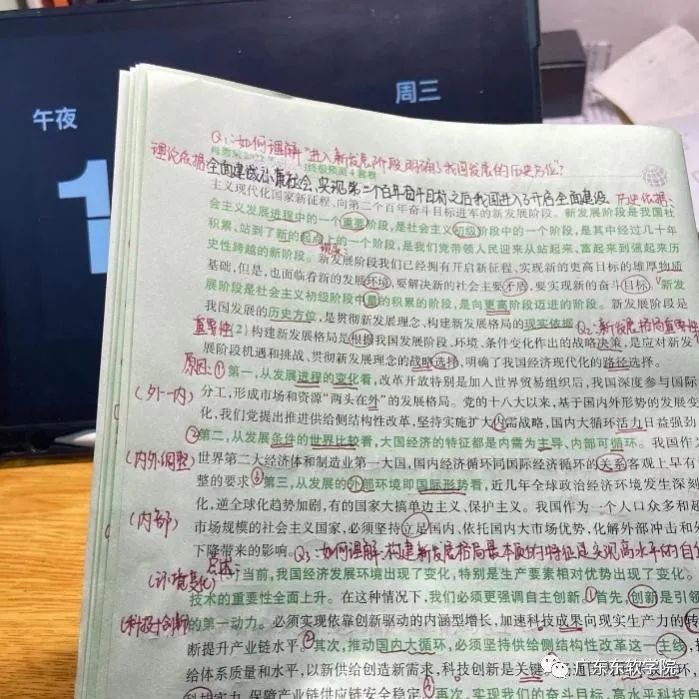 午夜
周三
1
Q1:如何理解"进入新发展阶段明确了我国发展的历史方位"?
理论依据
全面建成小康社会、实现第一个百年奋斗目标之后我国进入了开启全面建设
历史依据:
主义现代化国家新征程,向第二个百年奋斗目标进军的新发展阶段。新发展阶段是我国社
会主义发展进程中的一个重要阶段,是社会主义初级阶段中的一个阶段,是其中经过几十年
积累、站到了新的起点上的一个阶段,是我们党带领人民迎来从站起来、富起来到强起来历
史性跨越的新阶段。新发展阶段我们已经拥有开启新征程、实现新的更高目标的雄厚物质
基础,但是,也面临着新的发展环境,要解决新的社会主要矛盾,要实现新的奋斗目标。新发
展阶段是社会主义初级阶段中量的积累的阶段,是向更高阶段迈进的阶段。新发展阶段是
我国发展的历史方位,是贯彻新发展理念、构建新发展格局的现实依据
Q2:新发展格局重要性
重要性(2)构建新发展格局是根据我国发展阶段、环境、条件变化作出的战略决策,是应对新发
展阶段机遇和挑战、贯彻新发展理念的战略选择,明确了我国经济现代化的路径选择。
原因:①第一,从发展进程的变化看,改革开放特别是加入世贸组织后,我国深度参与国际
(外一内)
分工,形成市场和资源"两头在外"的发展格局。党的十八大以来,基于国内外形势的发展变
化,我们党提出推进供给侧结构性改革,坚持实施扩大内需战略,国内大循环活力日益强劲
②第二,从发展条件的世界比较看,大国经济的特征都是内需为主导、内部可循环。我国作为
(内外调整)
世界第二大经济体和制造业第一大国,国内经济循环同国际经济循环的关系客观上早有
整的要求③第三,从发展的外部环境即国际形势看,近几年全球政治经济环境发生深刻
化,逆全球化趋势加剧,有的国家大搞单边主义、保护主义。我国作为一个人口众多和
(内部)
市场规模的社会主义国家,必须坚持立足国内、依托国内大市场优势,化解外部冲击和外
下降带来的影响。Q3:如何理解构建新发展格局最本质的特征是实现高水平的自
(环境变化)
当前,我国经济发展环境出现了变化,特别是生产要素相对优势出现了变化。
技术的重要性全面上升。在这种情况下,我们必须更强调自主创新。①首先,创新是引领
(科技+创新)
的第一动力。必须实现依靠创新驱动的内涵型增长,加速科技成果向现实生产力的转
断提升产业链水平。②其次,推动国内大循环,必须坚持供给侧结构性改革这一主线,
给体系质量和水平,以新供给创造新需求,科技创新是关键。
保障产业链供应链安全稳定。③再次,实现我们的奋斗目标,高水平科技
广东东软学院